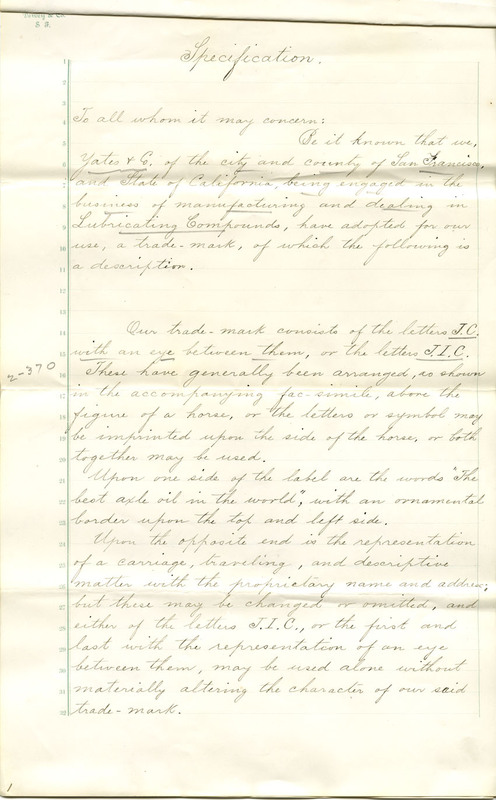 S. F.
Specification.
To all whom it may concern:
Be it known that we,
Yates & Co. of the city and county of San Francisco,
and State of California, being engaged in the
business of manufacturing and dealing in
Lubricating Compounds, have adopted for our
use, a trade-mark, of which the following is
a description.
Our trade-mark consists of the letters I.C.
with an eye between them, or the letters I.I.C.
2-370
These have generally been arranged, as shown
in the accompanying fac-simile, above the
figure of a horse, or the letters or symbol may
be imprinted upon the side of the horse, or both
together may be used.
Upon one side of the label are the words "The
best axle oil in the world", with an ornamental
border upon the top and left side.
Upon the opposite end is the representation
of a carriage, traveling, and descriptive
matter with the proprietary name and address;
but these may be changed or omitted, and
either of the letters I.I.C., or the first and
last with the representation of an eye
between them, may be used alone without
materially altering the character of our said
trade-mark.
1